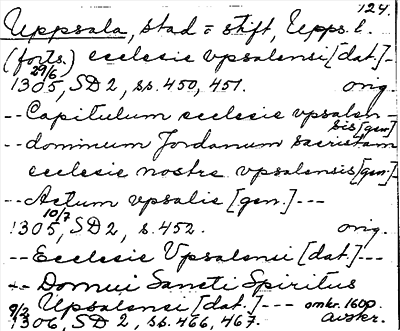 124.
Uppsala, stad o stift, Upps. l.
(forts.) ecclesie vpsalensi [dat.]-
29/6
1305, SD 2, ss. 450, 451. orig.
-- Capitulum ecclesie vpsalen-
sis [gen]
-- dominum Jordanum sacristam
ecclesie nostre vpsalensis [gen.]-
-- Actum vpsalie [gen.] ---
10/7
1305, SD 2, s. 452. orig.
-- Ecclesie Vpsalensi [dat.] ---
-- Domui Sancti Spiritus
Upsalensi [dat.] --- omkr. 1600
9/2
1306, SD 2, ss. 466, 467. avskr.